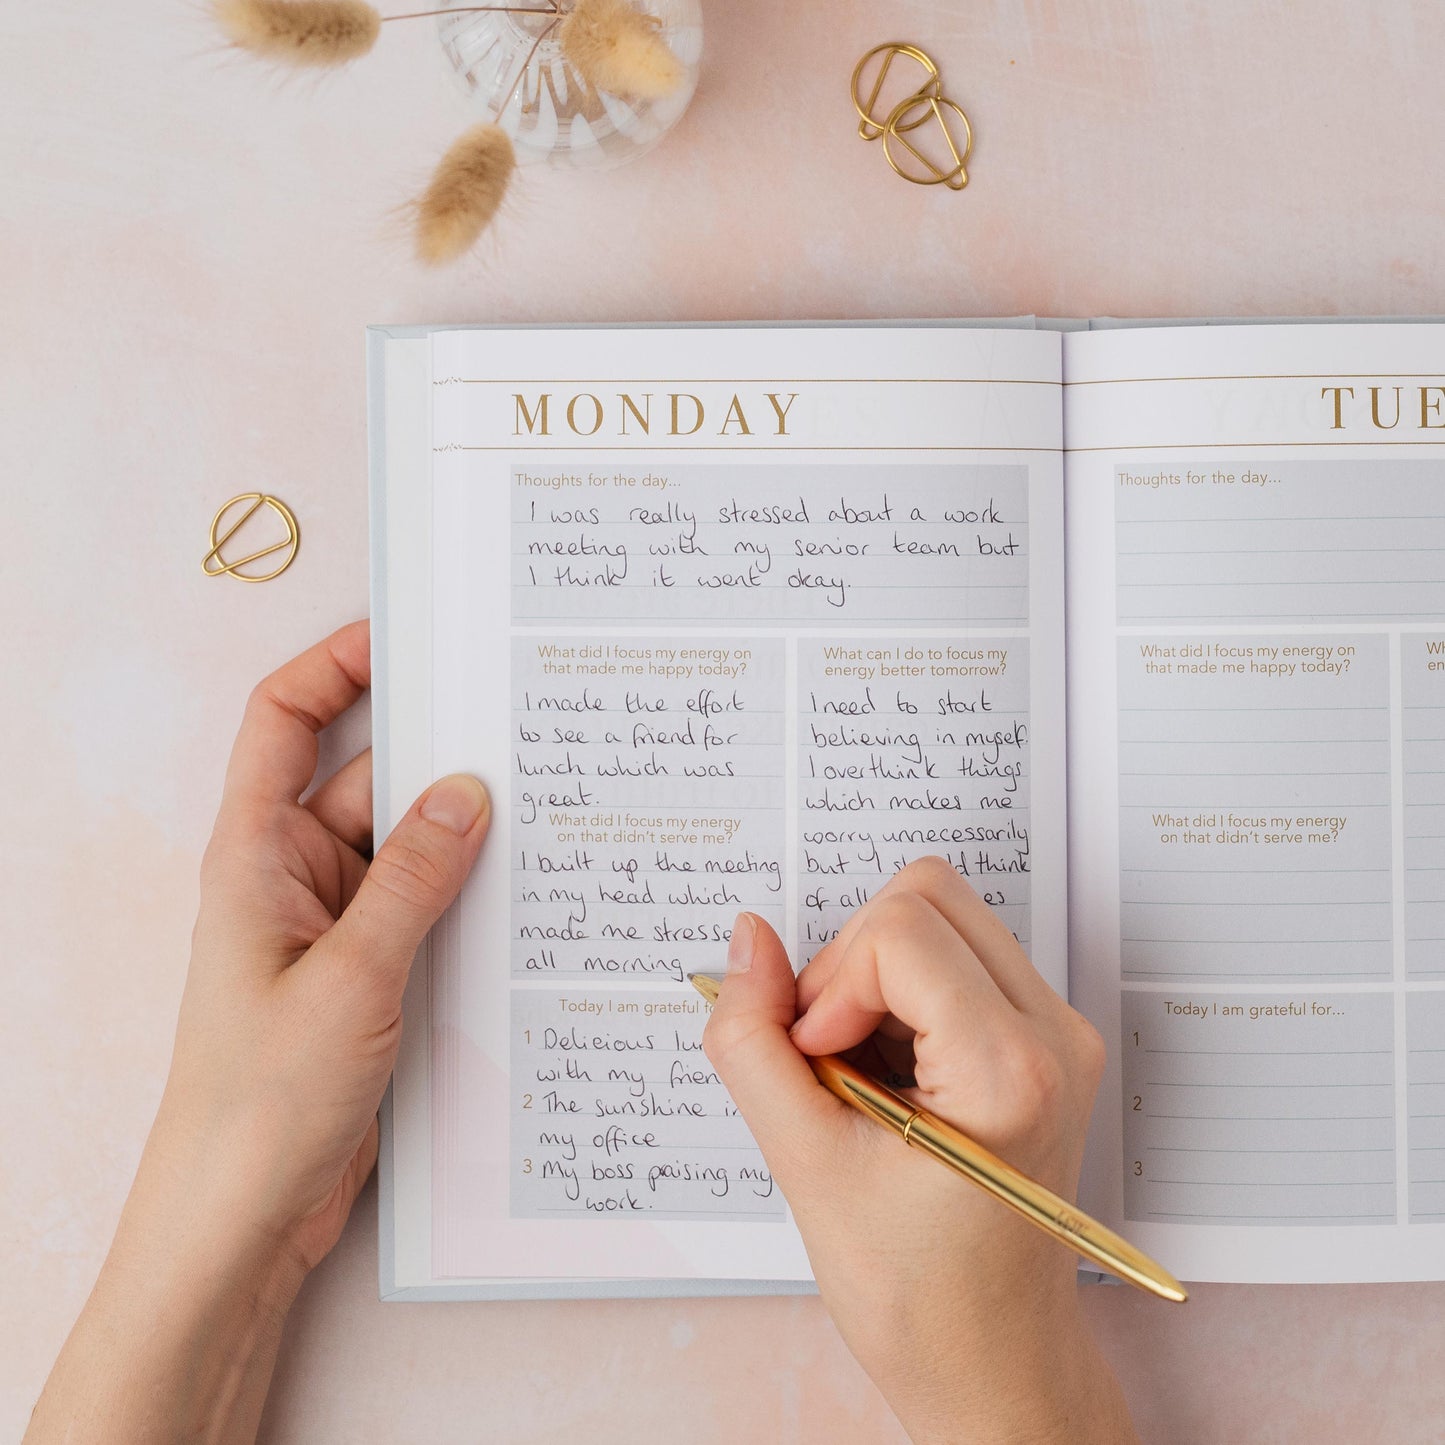 MONDAY
Thoughts for the day...
I was really stressed about a work
meeting with my senior team but
I think it went okay.
What did I focus my energy on
that made me happy today?
I made the effort
to see a friend for
lunch which was
great.
What did I focus my energy
on that didn't serve me?
I built up the meeting
in my head which
made me stresse
all morning
What can I do to focus my
energy better tomorrow?
I need to start
believing in myself.
I overthink things
which makes me
worry unnecessarily
but I think
of all es
I've
Today I am grateful
1 Delicious
with my
2 The sunshine in
my office
3 My boss praising my
work.
TUE
Thoughts for the day...
What did I focus my energy on
that made me happy today?
What did I focus my energy
on that didn't serve me?
Wh
en
Today I am grateful for...
1
2
3